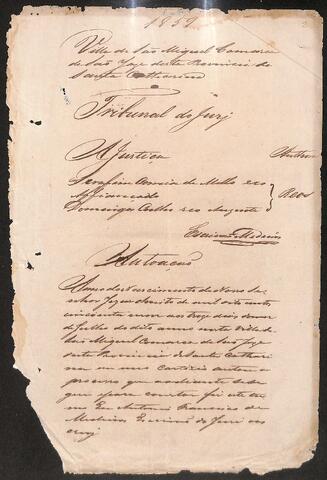 1859
Villa de São Miguel Comarca
de São Joze desta Provincia de
Santa Catharina
Tribunal do Jury
A Justiça Author
Serafim Correia de Mello reo
Affiançado Reos
Domingos reo Auzente
Escrivam Medeiros
Autoação
Anno do Nascimento de Nosso Se
nhor Jezus Christo de mil oito centos
cincoenta e nove aos treze dias do mez
de Julho do dito anno nesta Villa de
São Miguel Comarca de São Joze
desta Provincia de Santa Cathari
na em meu Cartorio autoei o
processo que ao diante se
que para constar fiz este
Eu Antonio Francisco de
Medeiros Escrivão do Jury